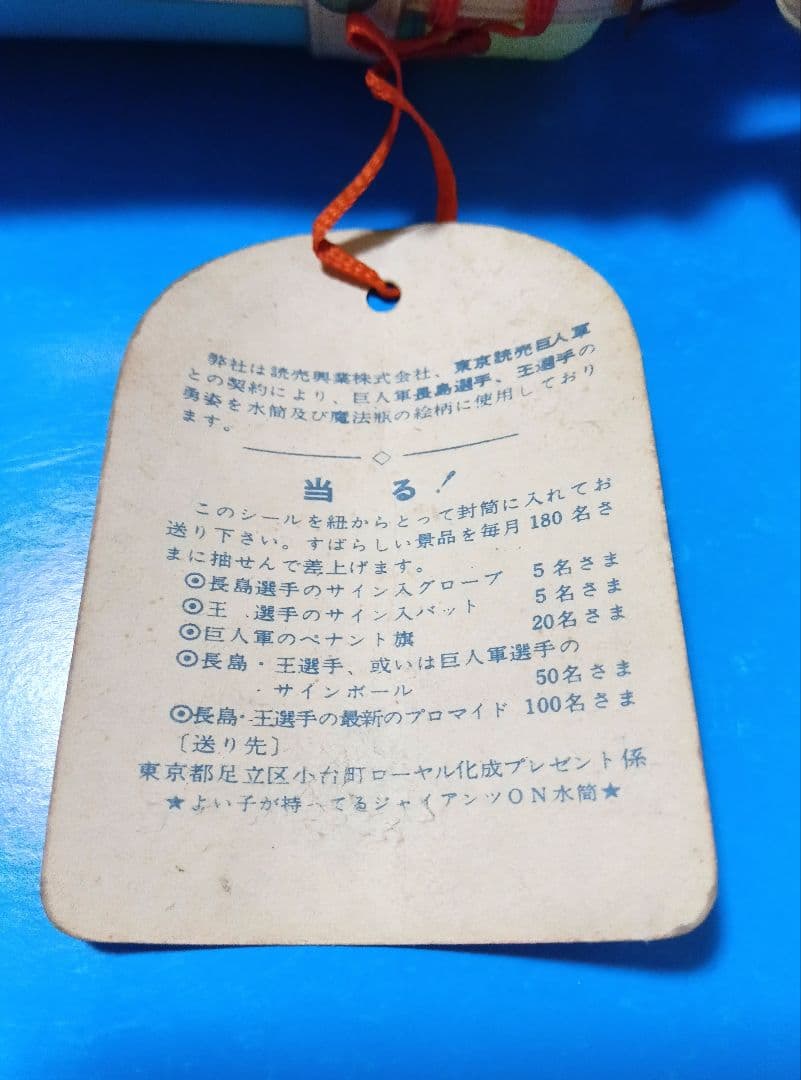 弊社は読売興業株式会社、東京読売巨人軍
との契約により、巨人軍長島選手、王選手の
勇姿を水筒及び魔法瓶の絵柄に使用しており
ます。
当る!
このシールを紐からとって封筒に入れてお
送り下さい。すばらしい景品を毎月180名さ
まに抽せんで差上げます。
◉長島選手のサイン入グローブ 5名さま
◉王 選手のサイン入バット 5名さま
◉巨人軍のペナント旗 20名さま
◉長島・王選手、或いは巨人軍選手の
サインボール 50名さま
◉長島・王選手の最新のプロマイド 100名さま
〔送り先〕
東京都足立区小台町ローヤル化成プレゼント係
★よい子が持ってるジャイアンツON水筒★